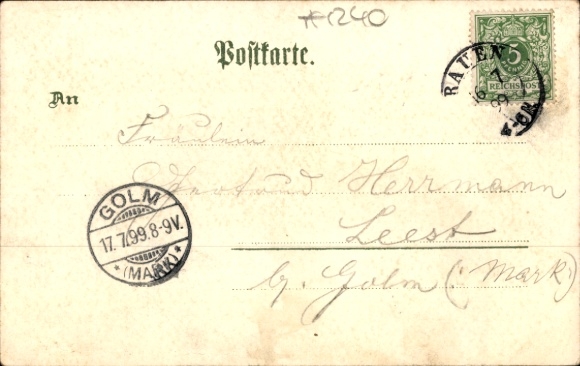 #1240
Postkarte.
5
REICHSPOST
RAUEN
An
Fräulein
Gertrud Herrmann
Leest
b/ Golm (: Mark)
GOLM
17.7.99.8-9V.
*(MARK)*